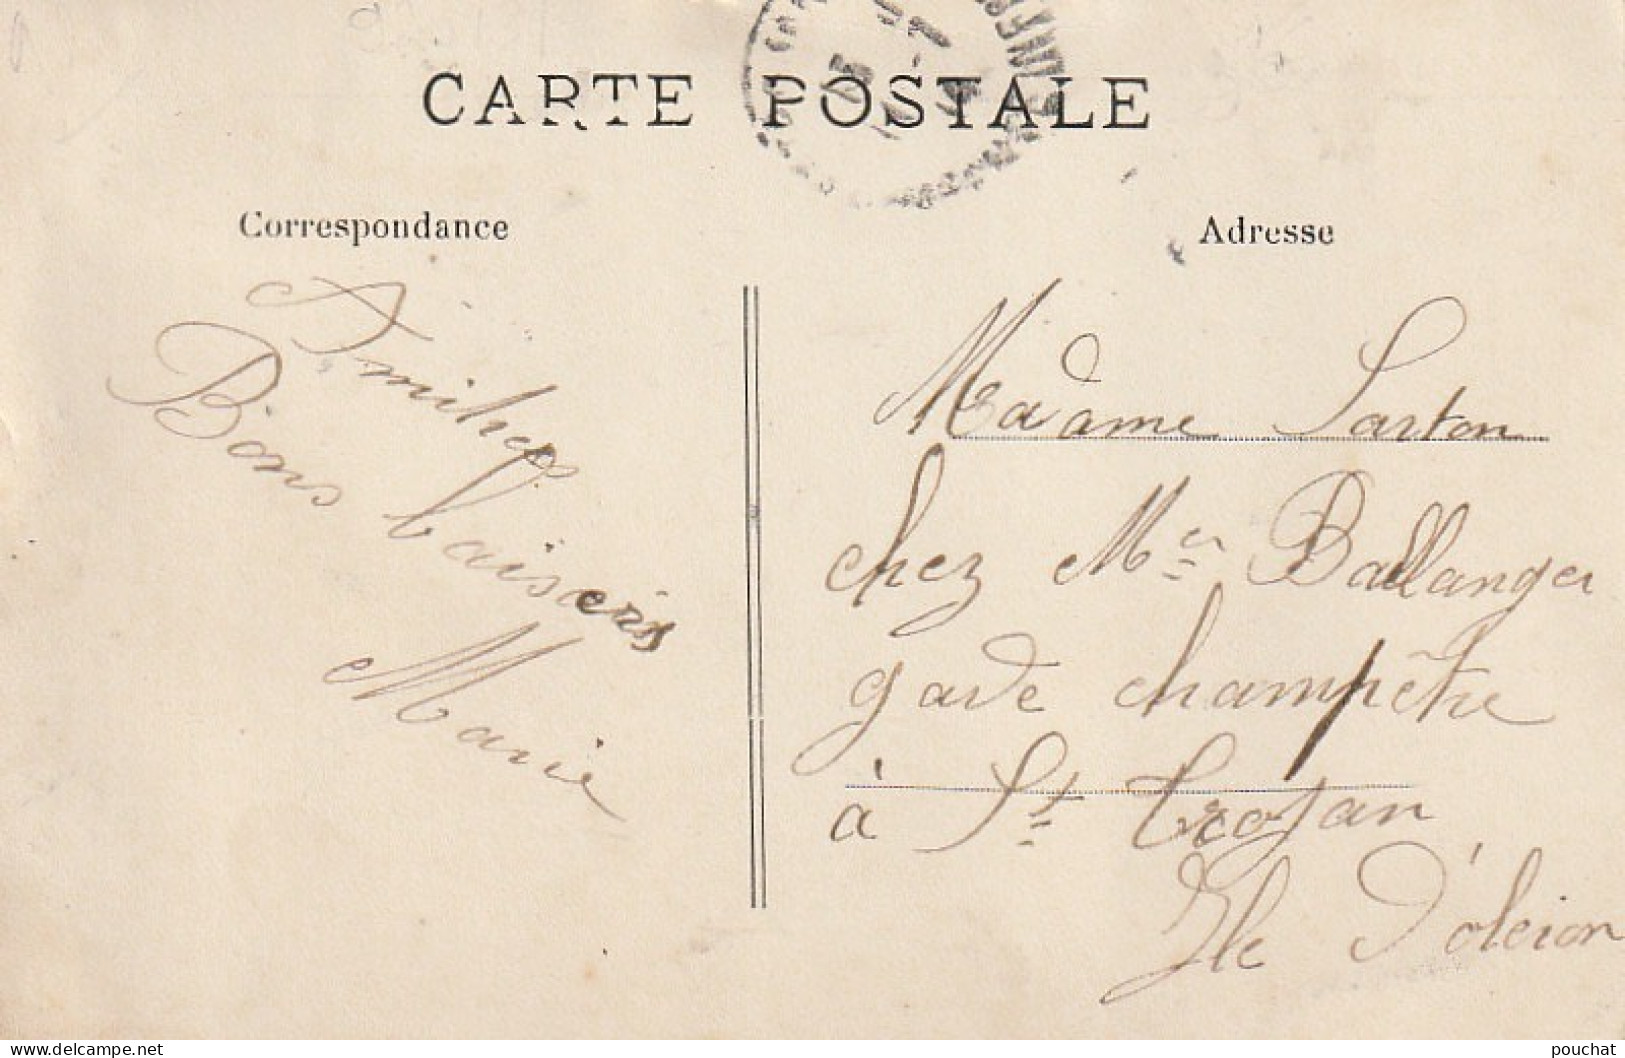 CARTE POSTALE
Correspondance
Adresse
Amitiés
Bons baisers
Marie
Madame Sarton
chez Mr Ballanger
garde champêtre
à St Trojan
Ile d'oleion
www.delcampe.net
pouchat